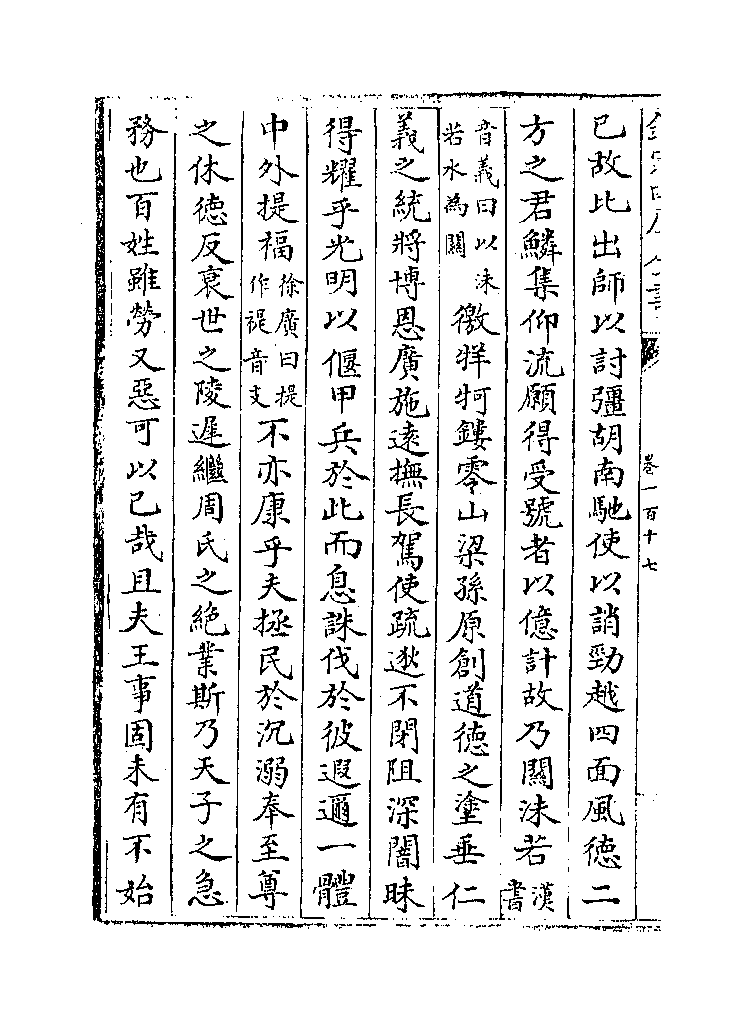 卷一百十七
已故比出師以討彊胡南馳使以誚勁越四面風德二
方之君鱗集仰流願得受號者以億計故乃關沬若漢書
音義曰以沬若水為關徼牂牁鏤零山梁孫原創道德之塗垂仁
義之統將博恩廣施遠撫長駕使疏逖不閉阻深闇昧
得耀乎光明以偃甲兵於此而息誅伐於彼遐邇一體
中外提福徐廣曰提作禔音支不亦康乎夫拯民於沉溺奉至尊
之休德反衰世之陵遲繼周氏之絶業斯乃天子之急
務也百姓雖勞又惡可以已哉且夫王事固未有不始